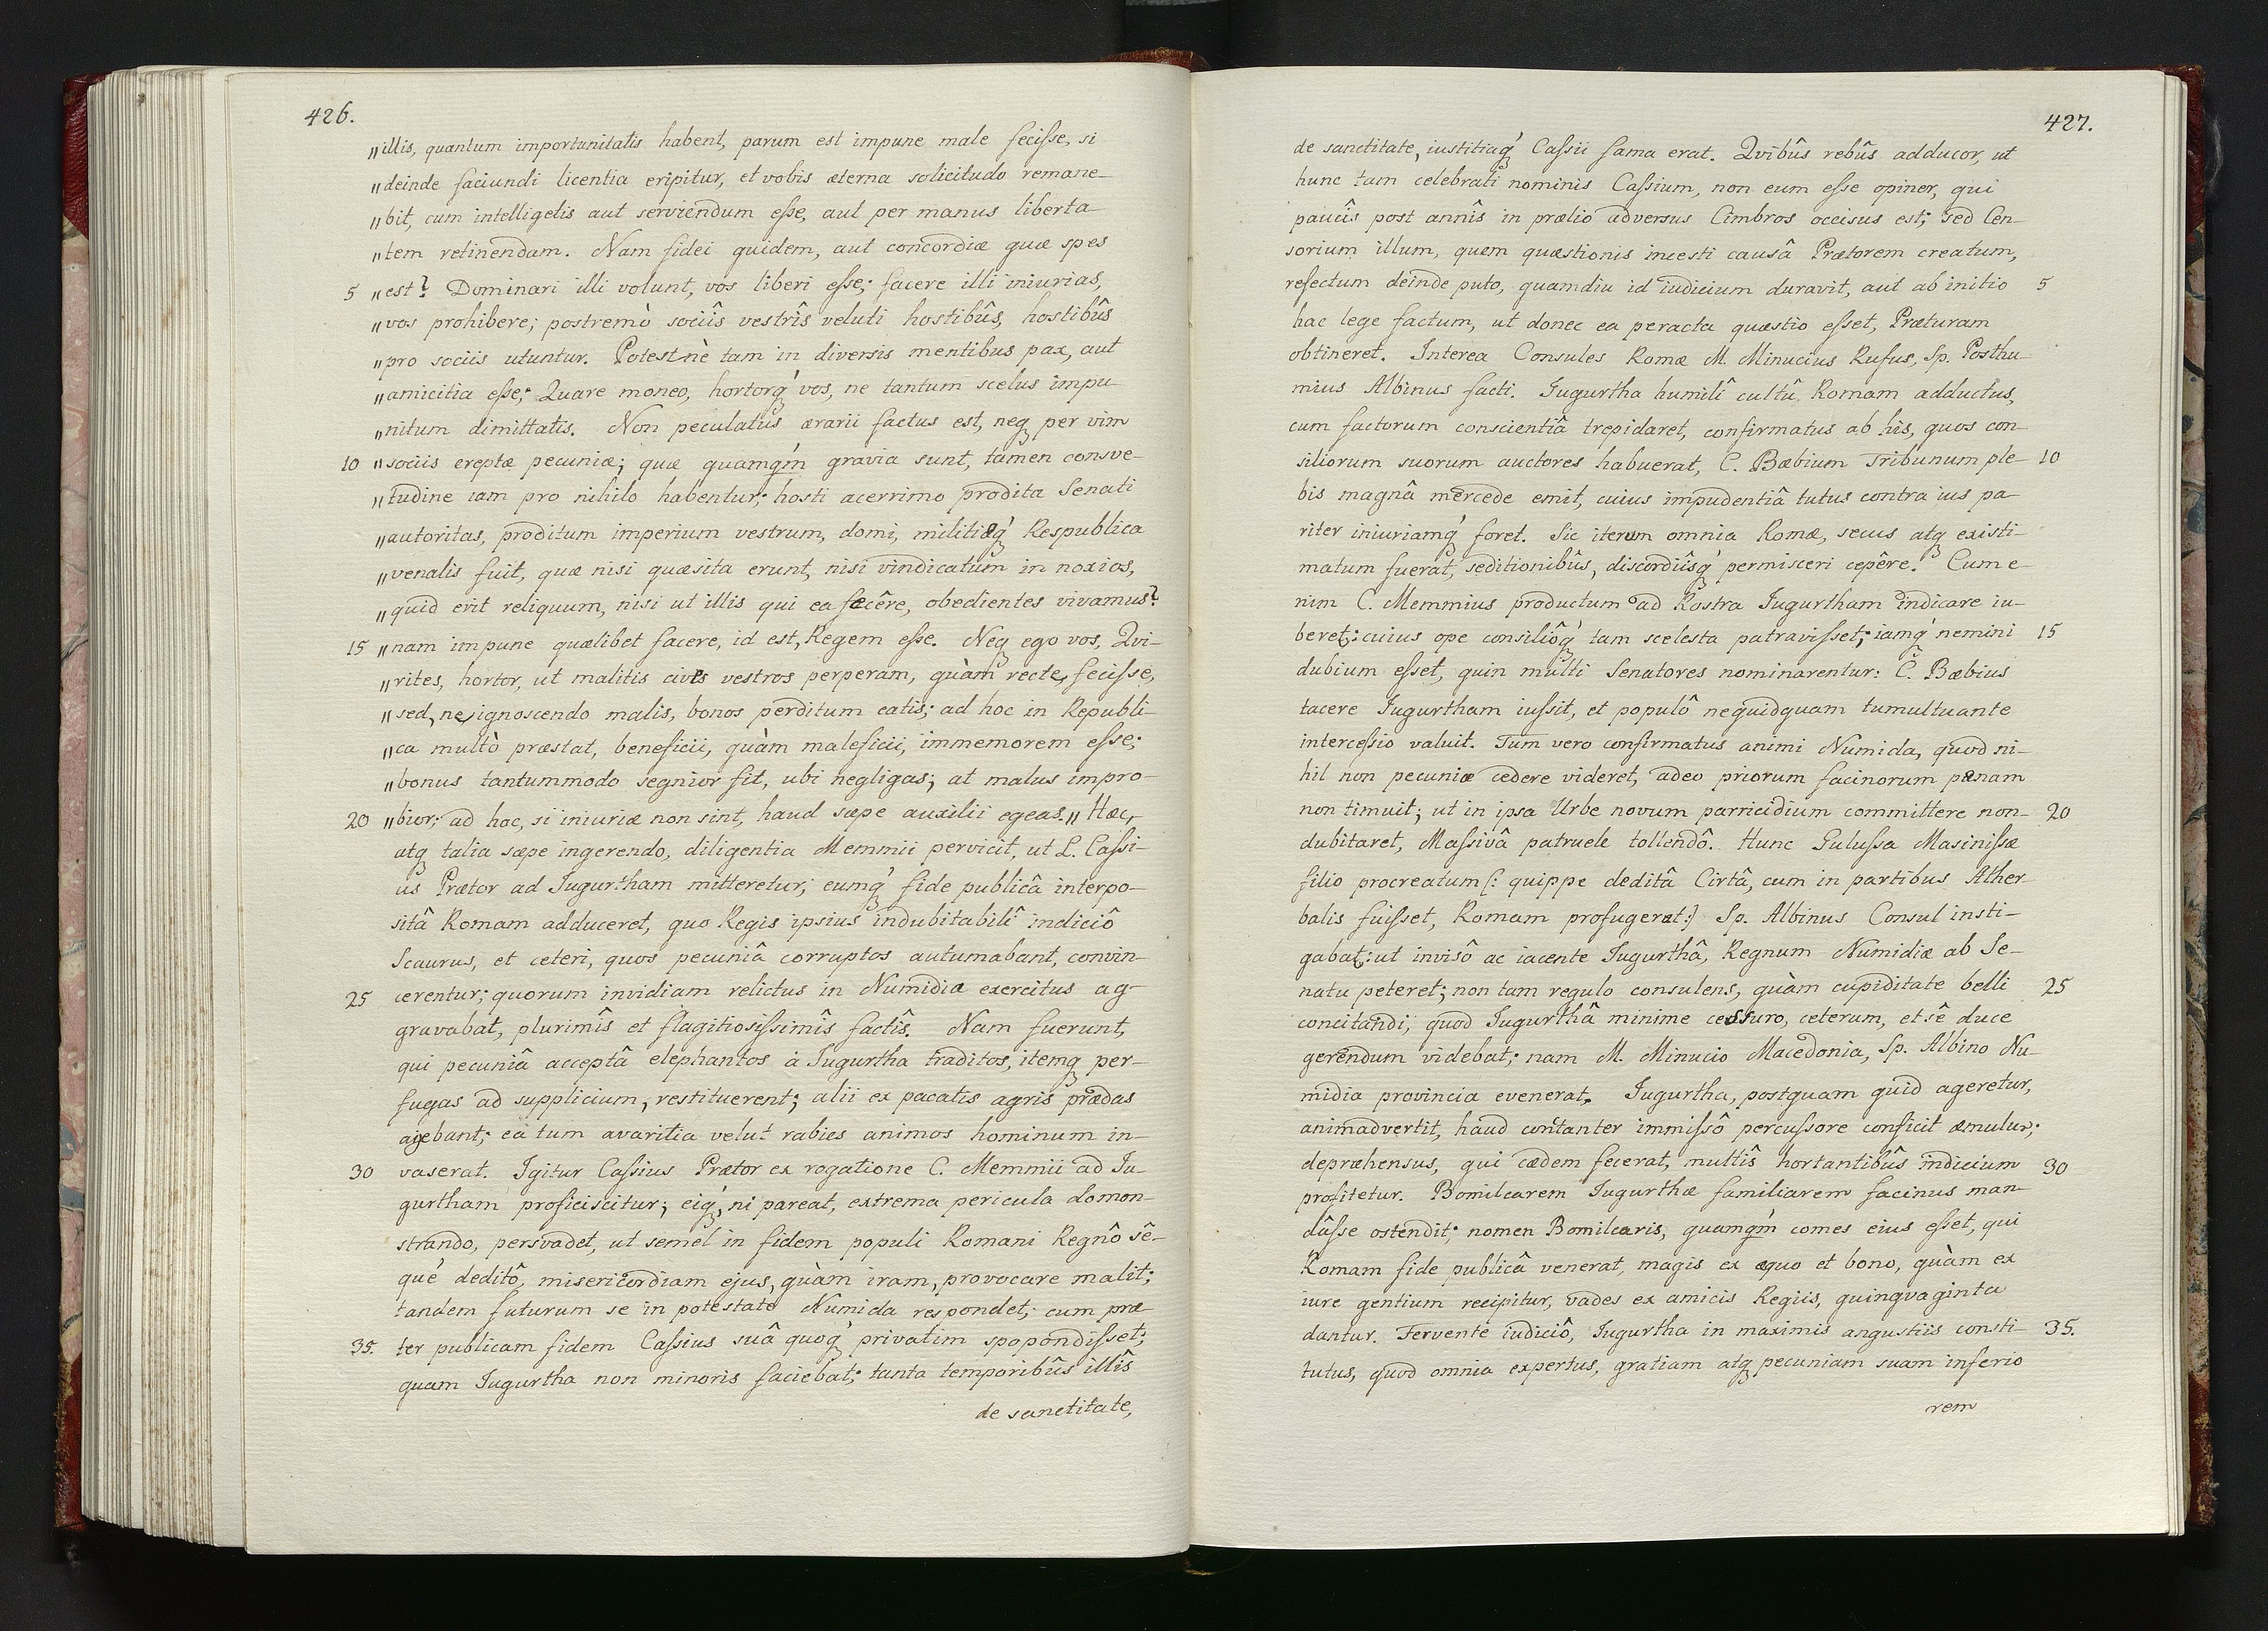 426.
„illis, quantum importunitatis habent, parum est impune male fecisse, si
„deinde faciundi licentia eripitur, et vobis æterna solicitudo remane-
„bit, cum intelligetis aut serviendum esse, aut per manus liberta-
„tem retinendam. Nam fidei quidem, aut concordiæ quæ spes
5 „est? Dominari illi volunt, vos liberi esse; facere illi iniurias,
„vos prohibere; postremò sociîs vestrîs veluti hostibûs, hostibûs
„pro sociis utuntur. Potest nè tam in diversis mentibus pax, aut
„amicitia esse; Quare moneo, hortorq́ vos, ne tantum scelus impu-
„nitum dimittatis. Non peculatus ærarii factus est, neq per vim
10 „sociis ereptæ pecuniæ; quæ quamqm̄ gravia sunt, tamen consve-
„tudine iam pro nihilo habentur; hosti acerrimo prodita Senati
„autoritas, proditum imperium vestrum, domi, militiæq́ Respublica
„venalis fuit, quæ nisi quæsita erunt, nisi vindicatum in noxios,
„quid erit reliquum, nisi ut illis qui ea fecêre, obedientes vivamus?
15 „nam impune quælibet facere, id est, Regem esse. Neq ego vos, Qvi-
„rites, hortor, ut malitis cives vestros perperam, quàm recte, fecisse,
„sed, ne, ignoscendo malis, bonos perditum eatis; ad hoc in Republi-
„ca multò præstat, beneficii, quàm maleficii, immemorem esse;
„bonus tantummodo segnior fit, ubi negligas; at malus impro-
20 „bior; ad hoc, si iniuriæ non sint, haud sæpe auxilii egeas.„ Hæc,
atq talia sæpe ingerendo, diligentia Memmii pervicit, ut L. Cassi-
us Prætor ad Iugurtham mitteretur; eumq́ fide publicâ interpo-
sitâ Romam adduceret, quo Regis ipsius indubitabilî indiciô
Scaurus, et ceteri, quos pecuniâ corruptos autumabant, convin-
25 cerentur; quorum invidiam relictus in Numidia exercitus ag-
gravabat, plurimîs et flagitiosissimîs factîs. Nam fuerunt,
qui pecuniâ acceptâ elephantos à Iugurtha traditos, itemq per-
fugas ad supplicium, restituerent; alii ex pacatis agris prædas
agebant; ea tum avaritia velut rabies animos hominum in-
30 vaserat. Igitur Cassius Prætor ex rogatione C. Memmii ad Iu-
gurtham proficiscitur; eiq́, ni pareat, extrema pericula domon-
strando, persvadet, ut semel in fidem populi Romani Regnô sê-
qué deditô, misericordiam ejus, quàm iram, provocare malit;
tandem futurum se in potestate Numida respondet; cum præ-
35. ter publicam fidem Cassius suâ quoq́ privatim spopondisset;
quam Iugurtha non minoris faciebat; tanta temporibûs illîs
de sanctitate,
427.
de sanctitate, iustitiaq́ Cassii fama erat. Qvibûs rebûs adducor, ut
hunc tam celebrati nominis Cassium, non eum esse opiner, qui
paucîs post annîs in prælio adversus Cimbros occisus est; sed Cen-
sorium illum, quem quæstionis incesti causâ Prætorem creatum,
refectum deinde puto, quamdiu id iudicium duravit, aut ab initio 5
hac lege factum, ut donec ea peracta quæstio esset, Præturam
obtineret. Interea Consules Romæ M. Minucius Rufus, Sp. Posthu-
mius Albinus facti. Iugurtha humilî cultû Romam adductus,
cum factorum conscientiâ trepidaret, confirmatus ab his, quos con-
siliorum suorum auctores habuerat, C. Bæbium Tribunum ple- 10
bis magnâ mercede emit, cuius impudentiâ tutus contra ius pa-
riter iniuriamq́ foret. Sic iterum omnia Romæ, secus atq existi-
matum fuerat, seditionibûs, discordiîsq́ permisceri cepêre. Cum e-
nim C. Memmius productum ad Rostra Iugurtham indicare iu-
beret; cuius ope consiliôq́ tam scelesta patravisset; iamq́ nemini 15
dubium esset, quin multi Senatores nominarentur: C. Bæbius
tacere Iugurtham iussit, et populô nequidquam tumultuante
intercessio valuit. Tum vero confirmatus animi Numida, quod ni-
hil non pecuniæ cedere videret, adeo priorum facinorum pænam
non timuit; ut in ipsa Urbe novum parricidium committere non- 20
dubitaret, Massivâ patruele tollendô. Hunc Gulussa Masinissæ
filio procreatum [: quippe deditâ Cirtâ, cum in partibus Ather-
balis fuisset, Romam profugerat:] Sp. Albinus Consul insti-
gabat; ut invisô ac iacente Iugurthâ, Regnum Numidiæ ab Se-
natu peteret; non tam regulo consulens, quàm cupiditate belli 25
concitandi, quod Iugurthâ minime cessuro, ceterum, et sê duce
gerendum videbat; nam M. Minucio Macedonia, Sp. Albino Nu-
midia provincia evenerat. Iugurtha, postquam quid ageretur,
animadvertit, haud contanter immissô percussore conficit æmulum;
depræhensus, qui cædem fecerat, multîs hortantibûs indicium 30
profitetur. Bomilcarem Iugurthæ familiarem facinus man-
dâsse ostendit; nomen Bomilcaris, quamqm̄ comes eius esset, qui
Romam fide publicâ venerat, magis ex æquo et bono, quàm ex
iure gentium recipitur, vades ex amicis Regiis, quinqvaginta
dantur. Fervente iudiciô, Iugurtha in maximis angustiis consti- 35.
tutus, quod omnia expertus, gratiam atq pecuniam suam inferio
rem